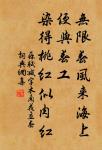 無限春風來海上
便與春工
染得桃紅似肉紅
蘇軾減字木蘭花立春